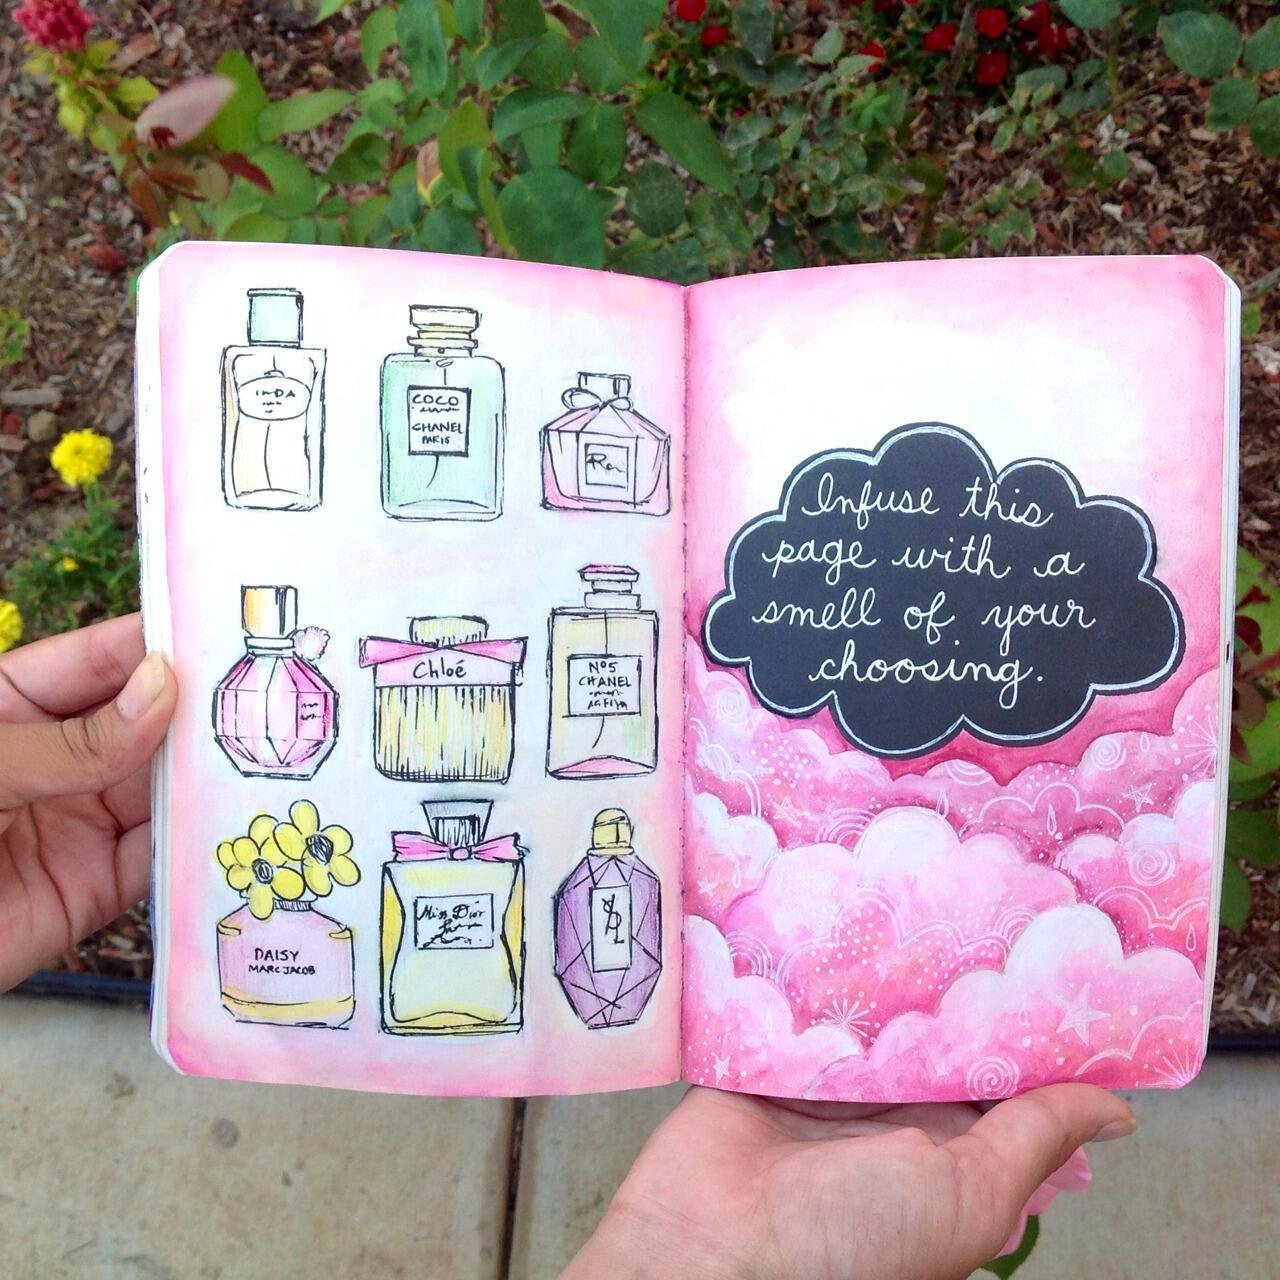 COCO
CHANEL
PARIS
Chloé
Nº5
CHANEL
DAISY
MARC JACOB
Miss Dior
YSL
Infuse this
page with a
smell of your
choosing.